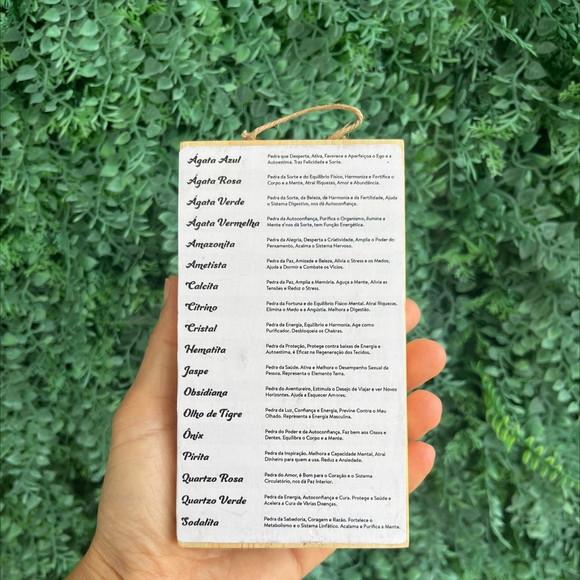 Ágata Azul
Pedra que Desperta, Ativa, Favorece e Aperfeiçoa o Ego e a
Autoestima. Traz Felicidade e Sorte.
Ágata Rosa
Pedra da Sorte e do Equilíbrio Físico, Harmoniza e Fortifica o
Corpo e a Mente, Atrai Riquezas, Amor e Abundância.
Ágata Verde
Pedra da Sorte, da Beleza, de Harmonia e da Fertilidade, Ajuda
o Sistema Digestivo, nos dá Autoconfiança.
Ágata Vermelha
Pedra da Autoconfiança, Purifica o Organismo, Ilumina a
Mente e'nos dá Sorte, tem Função Energética.
Amazonita
Pedra da Alegria, Desperta a Criatividade, Amplia o Poder do
Pensamento, Acalma o Sistema Nervoso.
Ametista
Pedra da Paz, Amizade e Beleza, Alivia o Stress e os Medos,
Ajuda a Dormir e Combate os Vícios.
Calcita
Pedra da Paz, Amplia a Memória. Aguça a Mente, Alivia as
Tensões e Reduz o Stress.
Citrino
Pedra da Fortuna e do Equilíbrio Físico-Mental. Atrai Riquezas.
Elimina o Medo e a Angústia. Melhora a Digestão.
Cristal
Pedra de Energia, Equilíbrio e Harmonia. Age como
Purificador. Desbloqueia os Chakras.
Hematita
Pedra da Proteção, Protege contra baixas de Energia e
Autoestima, é Eficaz na Regeneração dos Tecidos.
Jaspe
Pedra da Saúde. Ativa e Melhora o Desempenho Sexual da
Pessoa. Representa o Elemento Terra.
Obsidiana
Pedra do Aventureiro, Estimula o Desejo de Viajar e ver Novos
Horizontes. Ajuda a Esquecer Amores.
Olho de Tigre
Pedra da Luz, Confiança e Energia, Previne Contra o Mau
Olhado. Representa a Energia Masculina.
Ônix
Pedra do Poder e da Autoconfiança. Faz bem aos Ossos e
Dentes. Equilibra o Corpo e a Mente.
Pirita
Pedra da Inspiração. Melhora a Capacidade Mental, Atrai
Dinheiro para quem a usa. Reduz a Ansiedade.
Quartzo Rosa
Pedra do Amor, é Bom para o Coração e o Sistema
Circulatório, nos dá Paz Interior.
Quartzo Verde
Pedra da Energia, Autoconfiança e Cura. Protege a Saúde e
Acelera a Cura de Várias Doenças.
Sodalita
Pedra da Sabedoria, Coragem e Razão. Fortalece o
Metabolismo e o Sistema Linfático. Acalama e Purifica a Mente.